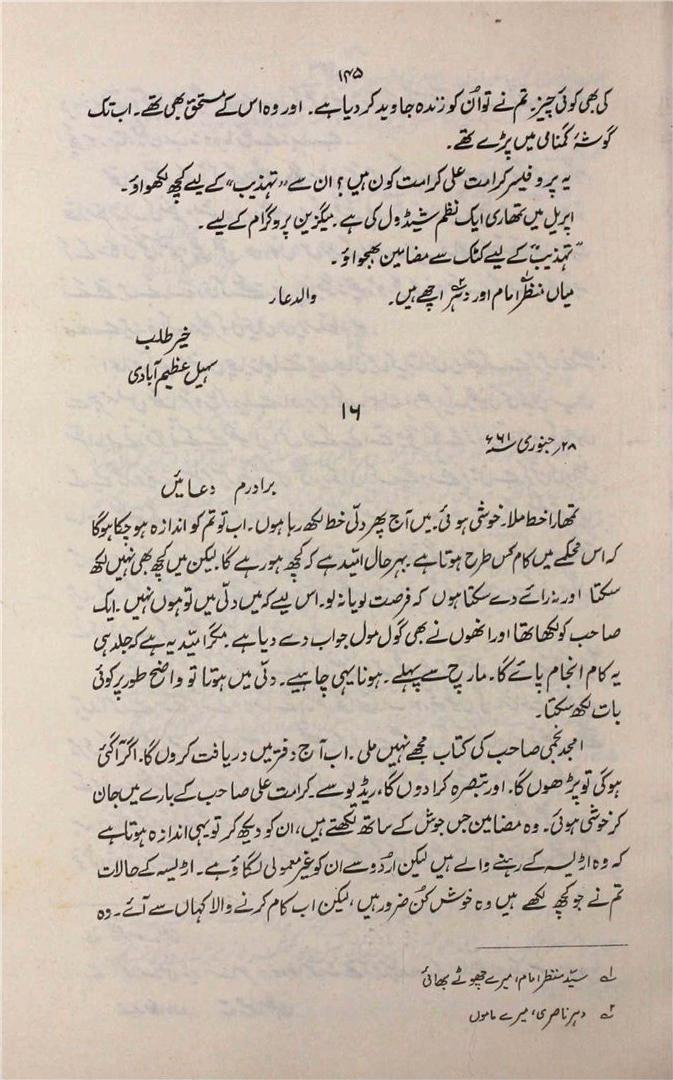 ۱۴۵
کی بھی کوئی چیز۔ تم نے تو اُن کو زندہ جاوید کر دیا ہے۔ اور وہ اس کے مستحق بھی تھے۔ اب تک
گوشۂ گمنامی میں پڑے تھے۔
یہ پروفیسر کرامت علی کرامت کون ہیں؟ ان سے ''تہذیب'' کے لیے کچھ لکھواؤ۔
اپریل میں تمھاری ایک نظم شیڈول کی ہے۔ میگزین پروگرام کے لیے۔
''تہذیب'' کے لیے کٹک سے مضامین بھجواؤ۔
میاں منتظر۱ امام اور دہر۲ اچھے ہیں۔ والدعا
خیر طلب
سہیل عظیم آبادی
۱۶
۲۸؍ جنوری ۶۶۱
برادرم دعائیں
تمھارا خط ملا۔ خوشی ہوئی۔ میں آج پھر دلّی خط لکھ رہا ہوں۔ اب تو تم کو اندازہ ہو چکا ہوگا
کہ اس محکمے میں کام کس طرح ہوتا ہے۔ بہرحال امّید ہے کہ کچھ ہو رہے گا۔ لیکن میں کچھ بھی نہیں لکھ
سکتا اور نہ رائے دے سکتا ہوں کہ فرصت لو یا نہ لو۔ اس لیے کہ میں دلّی میں تو ہوں نہیں۔ ایک
صاحب کو لکھا تھا اور انھوں نے بھی گول مول جواب دے دیا ہے۔ مگر امّید یہ ہے کہ جلد ہی
یہ کام انجام پائے گا۔ مارچ سے پہلے۔ ہونا یہی چاہیے۔ دلّی میں ہوتا تو واضح طور پر کوئی
بات لکھ سکتا۔
امجد نجمی صاحب کی کتاب مجھے نہیں ملی۔ اب آج دفتر میں دریافت کروں گا۔ اگر آگئی
ہوگی تو پڑھوں گا۔ اور تبصرہ کرا دوں گا، ریڈیو سے۔ کرامت علی صاحب کے بارے میں جان
کر خوشی ہوئی۔ وہ مضامین جس جوش کے ساتھ لکھتے ہیں، ان کو دیکھ کر تو یہی اندازہ ہوتا ہے
کہ وہ اڑیسہ کے رہنے والے ہیں لیکن اردو سے ان کو غیر معمولی لگاؤ ہے۔ اڑیسہ کے حالات
تم نے جو کچھ لکھے ہیں وہ خوش کن ضرور ہیں، لیکن اب کام کرنے والا کہاں سے آئے۔ وہ
۱ سیّد منتظر امام، میرے چھوٹے بھائی
۲ دہر ناصری، میرے ماموں